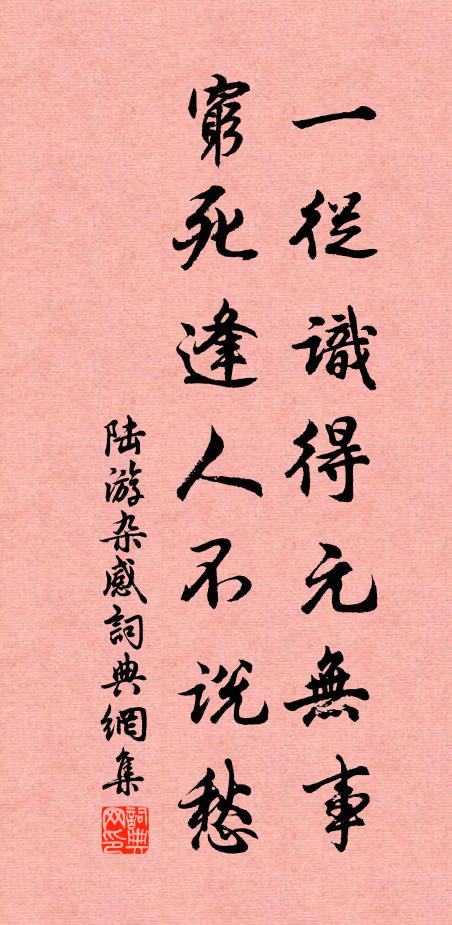 一從識得元無事
窮死逢人不說愁
陆游杂感詞典網集
詞典网印